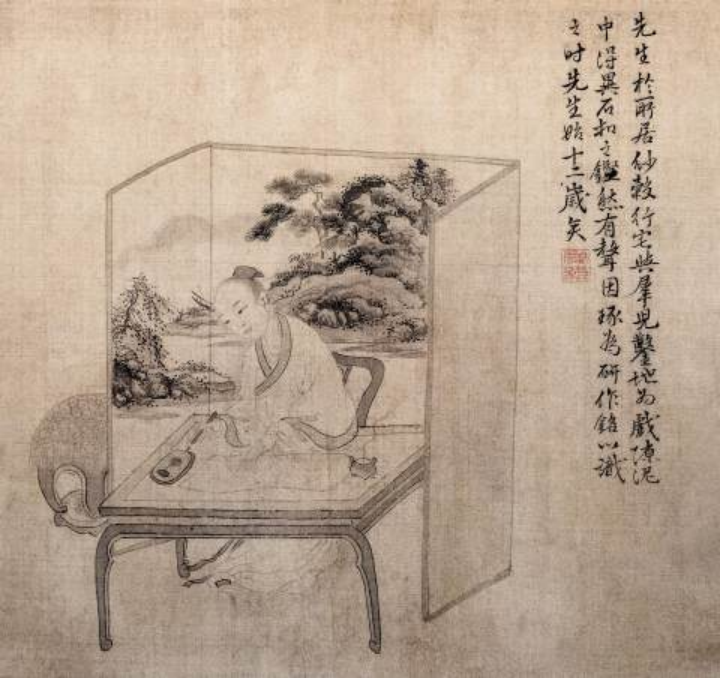 先生於所居紗縠行宅與羣兒鑿地為戲陳泥
中得異石扣之鏗然有聲因琢為硏作銘以識
之时先生始十二歲矣